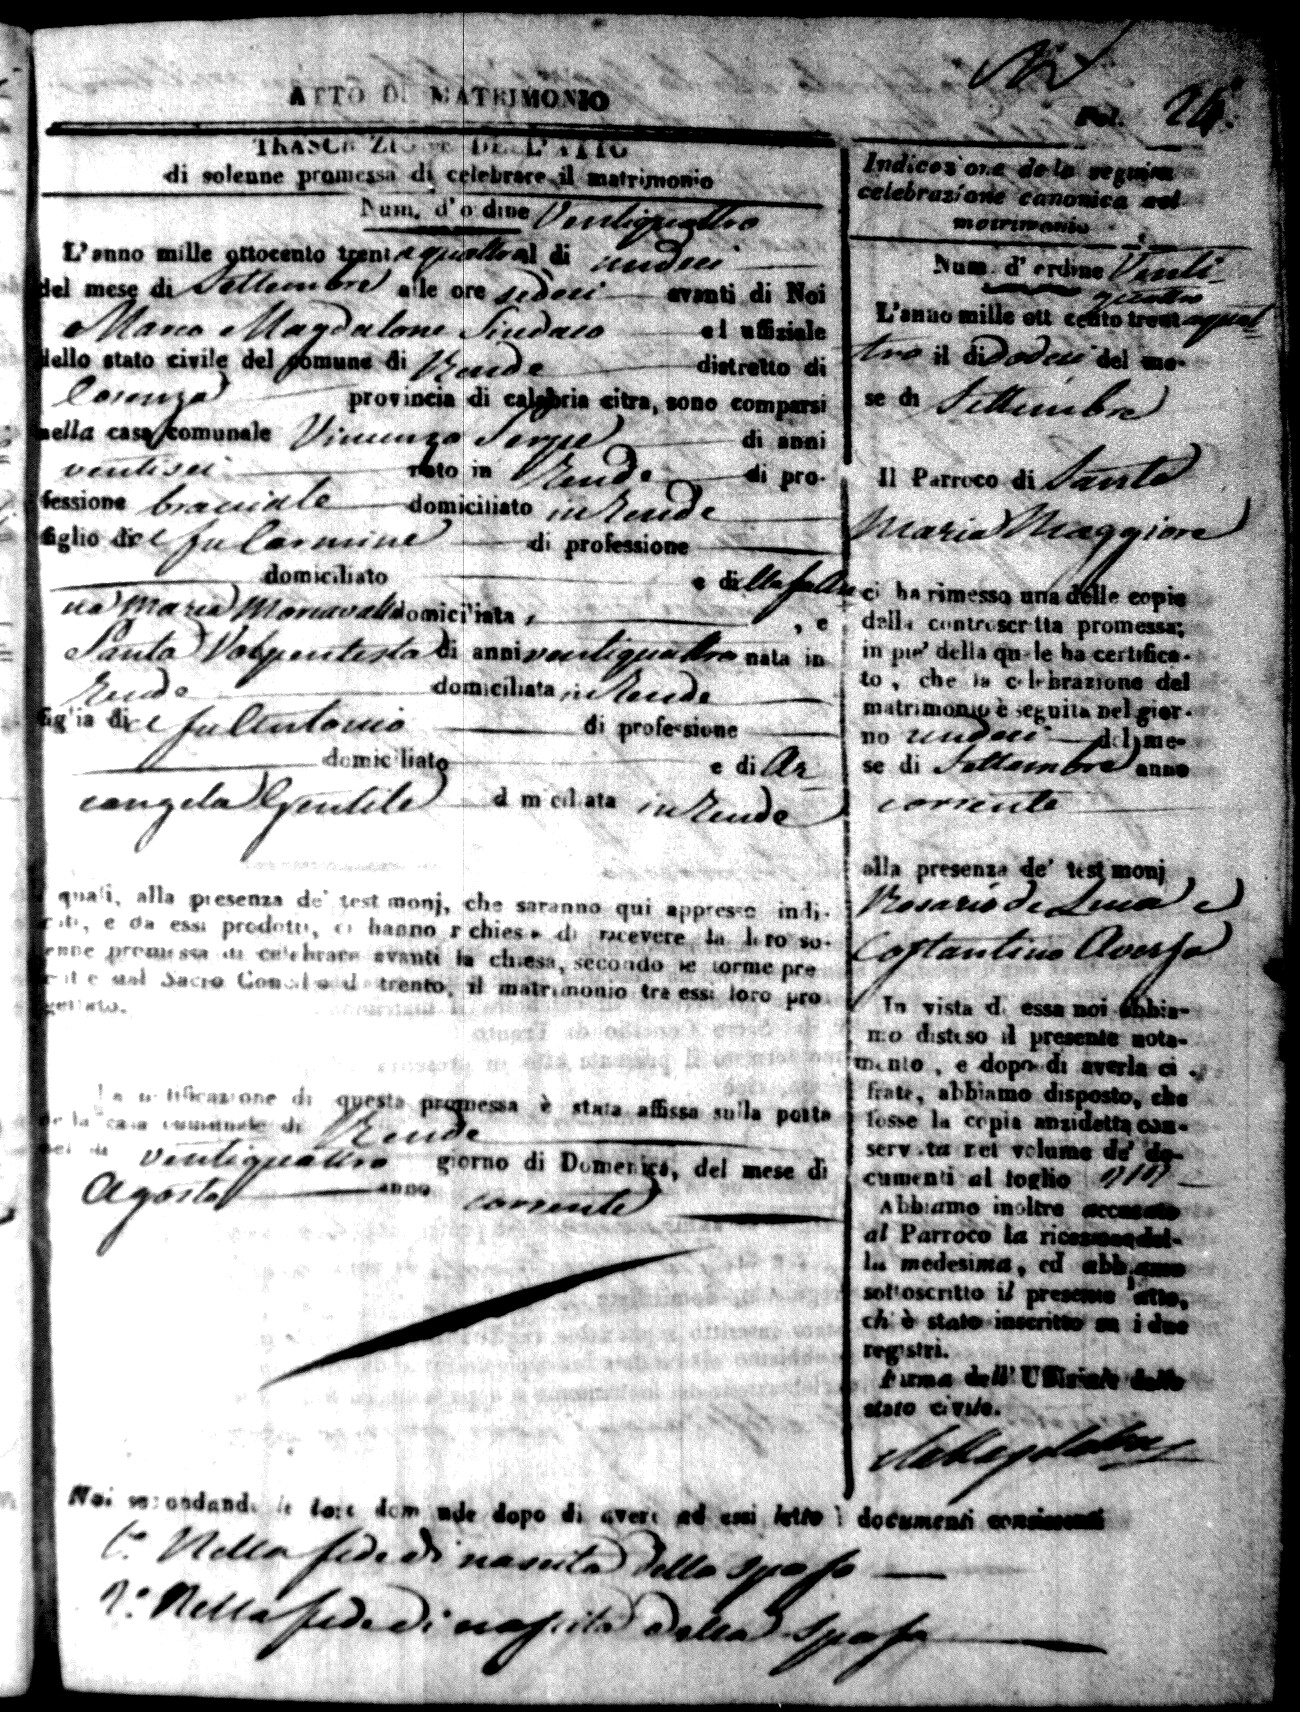 ATTO DI MATRIMONIO
Fol. 24.
TRASCRIZIONE DELL'ATTO
di solenne promessa di celebrare il matrimonio
Num. d'ordine Ventiquattro
L'anno mille ottocento trentaquattro al di undeci
del mese di Settembre alle ore sedeci avanti di Noi
Marco Magdalone Sindaco ed uffiziale
dello stato civile del comune di Rende distretto di
Cosenza provincia di calabria citra, sono comparsi
nella casa comunale Vincenzo Serpe di anni
ventisei nato in Rende di pro-
fessione bracciale domiciliato in Rende
figlio del fu Carmine di professione
domiciliato e della fu
Maria domiciliata , e
Santa Volpentesta di anni ventiquattro nata in
Rende domiciliata in Rende
figlia del fu Antonio di professione
domiciliato e di Ar
cangela Gentile domiciliata in Rende
i quali, alla presenza de' testimonj, che saranno qui appresso indi-
cati, e da essi prodotti, ci hanno richiesto di ricevere la loro so-
lenne promessa di celebrare avanti la chiesa, secondo le forme pre
scritte dal Sacro Concilio di trento, il matrimonio tra essi loro pro
gettato.
La notificazione di questa promessa è stata affissa sulla porta
della casa comunale di Rende
nel di ventiquattro giorno di Domenica, del mese di
Agosto anno corrente
Indicazione della seguita
celebrazione canonica nel
matrimonio
Num. d'ordine Venti
quattro
L'anno mille ottocento trentaquat
tro il di Dodeci del me-
se di Settembre
Il Parroco di Santa
Maria Maggiore
ci ha rimesso una delle copie
della controscritta promessa;
in pie' della quale ha certifica-
to, che la celebrazione del
matrimonio è seguita nel gior-
no undeci del me-
se di Settembre anno
corrente
alla presenza de' testimonj
Rosario de Luca e
Costantino Aversa
In vista di essa noi abbia-
mo disteso il presente nota-
mento, e dopo di averla ci-
frata, abbiamo disposto, che
fosse la copia anzidetta con-
servata nel volume de' do-
cumenti al foglio
Abbiamo inoltre accusato
al Parroco la ricezione del-
la medesima, ed abbiamo
sottoscritto il presente atto,
ch'è stato inscritto su i due
registri.
Firma dell'Uffiziale dello
stato civile.
Noi secondando le loro domande dopo di avere ad essi letto i documenti consistenti
1.o Nella fede di nascita dello sposo
2.o Nella fede di nascita della sposa